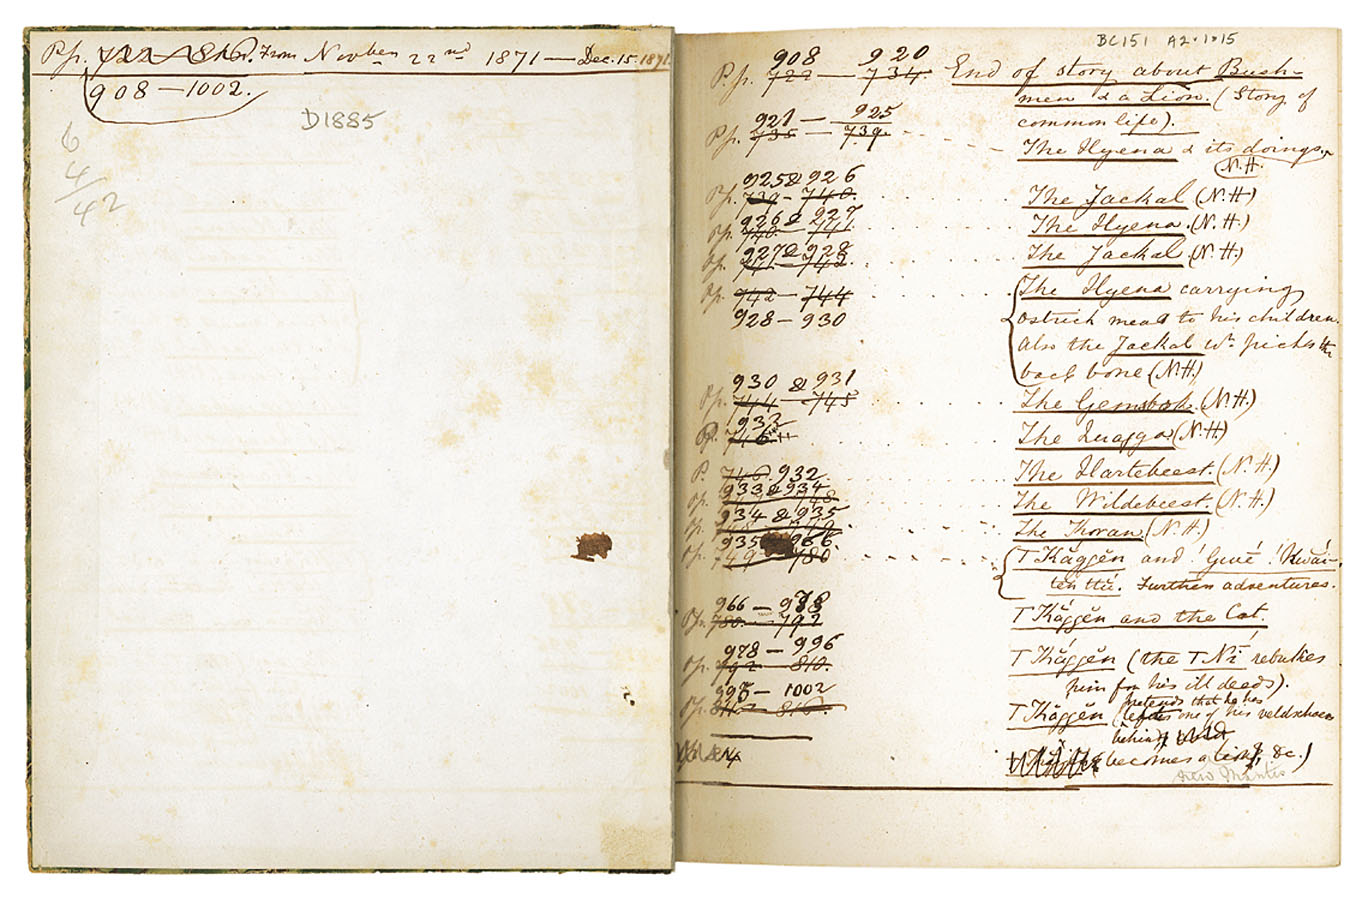 Pp. 722 – 816. From November 22nd 1871 — Dec. 15. 1871
908 – 1002.
D1885
6
4/42
BC151 A2.1.15
908 920
Pp. 722 — 734. End of story about Bush-
men & a Lion. (Story of
common life).
921 — 925
Pp. 735 — 739. The Hyena & its doings.
(N.H.)
925 & 926
Pp. 739 - 740. The Jackal (N.H)
926 & 927
Pp. 740 - 741 The Hyena. (N.H.)
927 & 928
Pp. 741 - 742. The Jackal. (N.H.)
Pp. 742 — 744 The Hyena carrying
928 — 930 ostrich meat to his children.
Also the Jackal wh. picks the
back bone (N.H.)
930 & 931
Pp. 744 — 745 The Gemsbok. (N.H.)
932
P. 746 The Quagga (N.H)
P. 746. 932 The Hartebeest. (N.H.)
933 & 934
Pp. 748 The Wildebeest. (N.H.)
934 & 935
Pp. 748 749 The Koran (N.H.)
935 966
Pp. 749 — 780 T Kăggĕn and
Further adventures.
966 — 978
Pp. 780 — 792 T Kăggĕn and the Cat.
978 — 996
Pp. 792 — 810. T Kăggĕn (the T Ní rebukes
him for his ill deeds).
995 — 1002 pretends that he has
Pp. 810 — 816. T Kăggĕn (left one of his veldschoens
behind,
becomes a &c.)
New Mantis